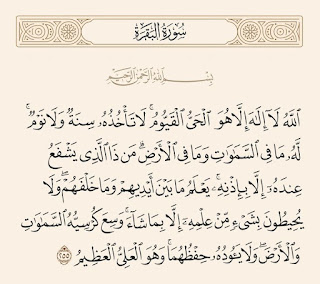 سُورَةُ البَقَرَةِ
بِسْمِ ٱللَّهِ ٱلرَّحْمَٰنِ ٱلرَّحِيمِ
ٱللَّهُ لَآ إِلَٰهَ إِلَّا هُوَ ٱلْحَىُّ ٱلْقَيُّومُ ۚ لَا تَأْخُذُهُۥ سِنَةٌ وَلَا نَوْمٌ ۚ
لَّهُۥ مَا فِى ٱلسَّمَٰوَٰتِ وَمَا فِى ٱلْأَرْضِ ۗ مَن ذَا ٱلَّذِى يَشْفَعُ
عِندَهُۥٓ إِلَّا بِإِذْنِهِۦ ۚ يَعْلَمُ مَا بَيْنَ أَيْدِيهِمْ وَمَا خَلْفَهُمْ ۖ وَلَا
يُحِيطُونَ بِشَىْءٍ مِّنْ عِلْمِهِۦٓ إِلَّا بِمَا شَآءَ ۚ وَسِعَ كُرْسِيُّهُ ٱلسَّمَٰوَٰتِ
وَٱلْأَرْضَ ۖ وَلَا يَـُٔودُهُۥ حِفْظُهُمَا ۚ وَهُوَ ٱلْعَلِىُّ ٱلْعَظِيمُ ٢٥٥